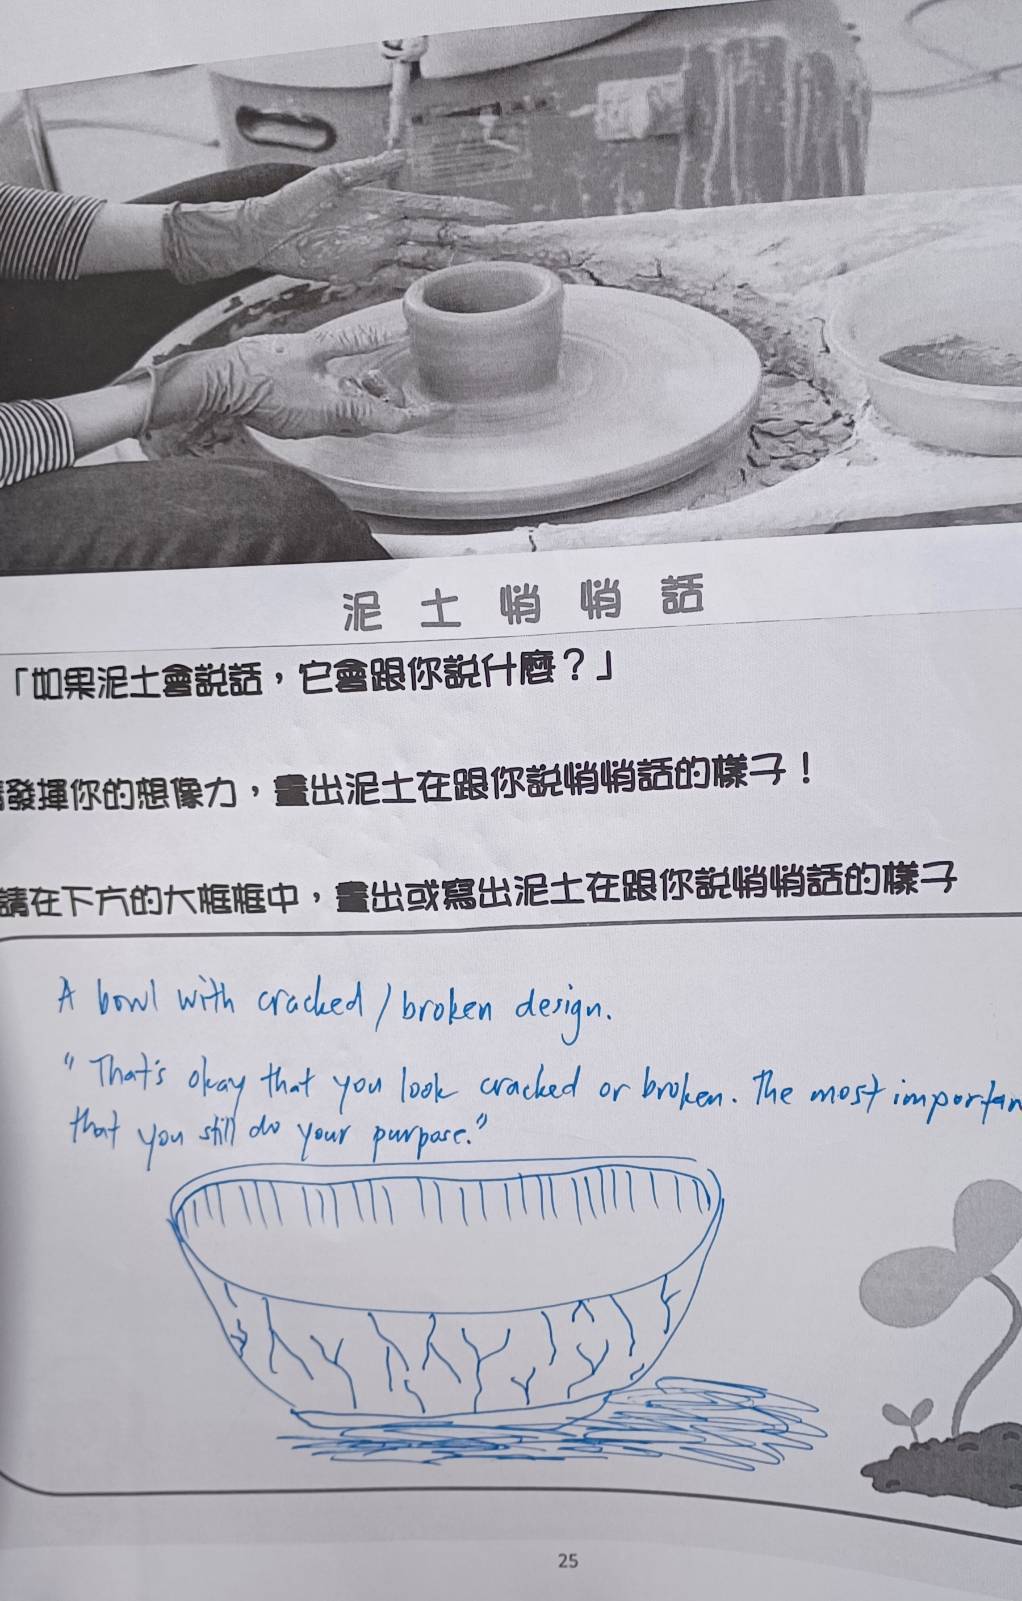 泥土悄悄話
「如果泥土會説話，它會跟你説什麼？」
發揮你的想像力，畫出泥土在跟你説悄悄話的樣子！
請在下方的大框框中，畫出或寫出泥土在跟你説悄悄話的樣子
A bowl with cracked / broken design.
"That's okay that you look cracked or broken. The most
that you still do your purpose."
25